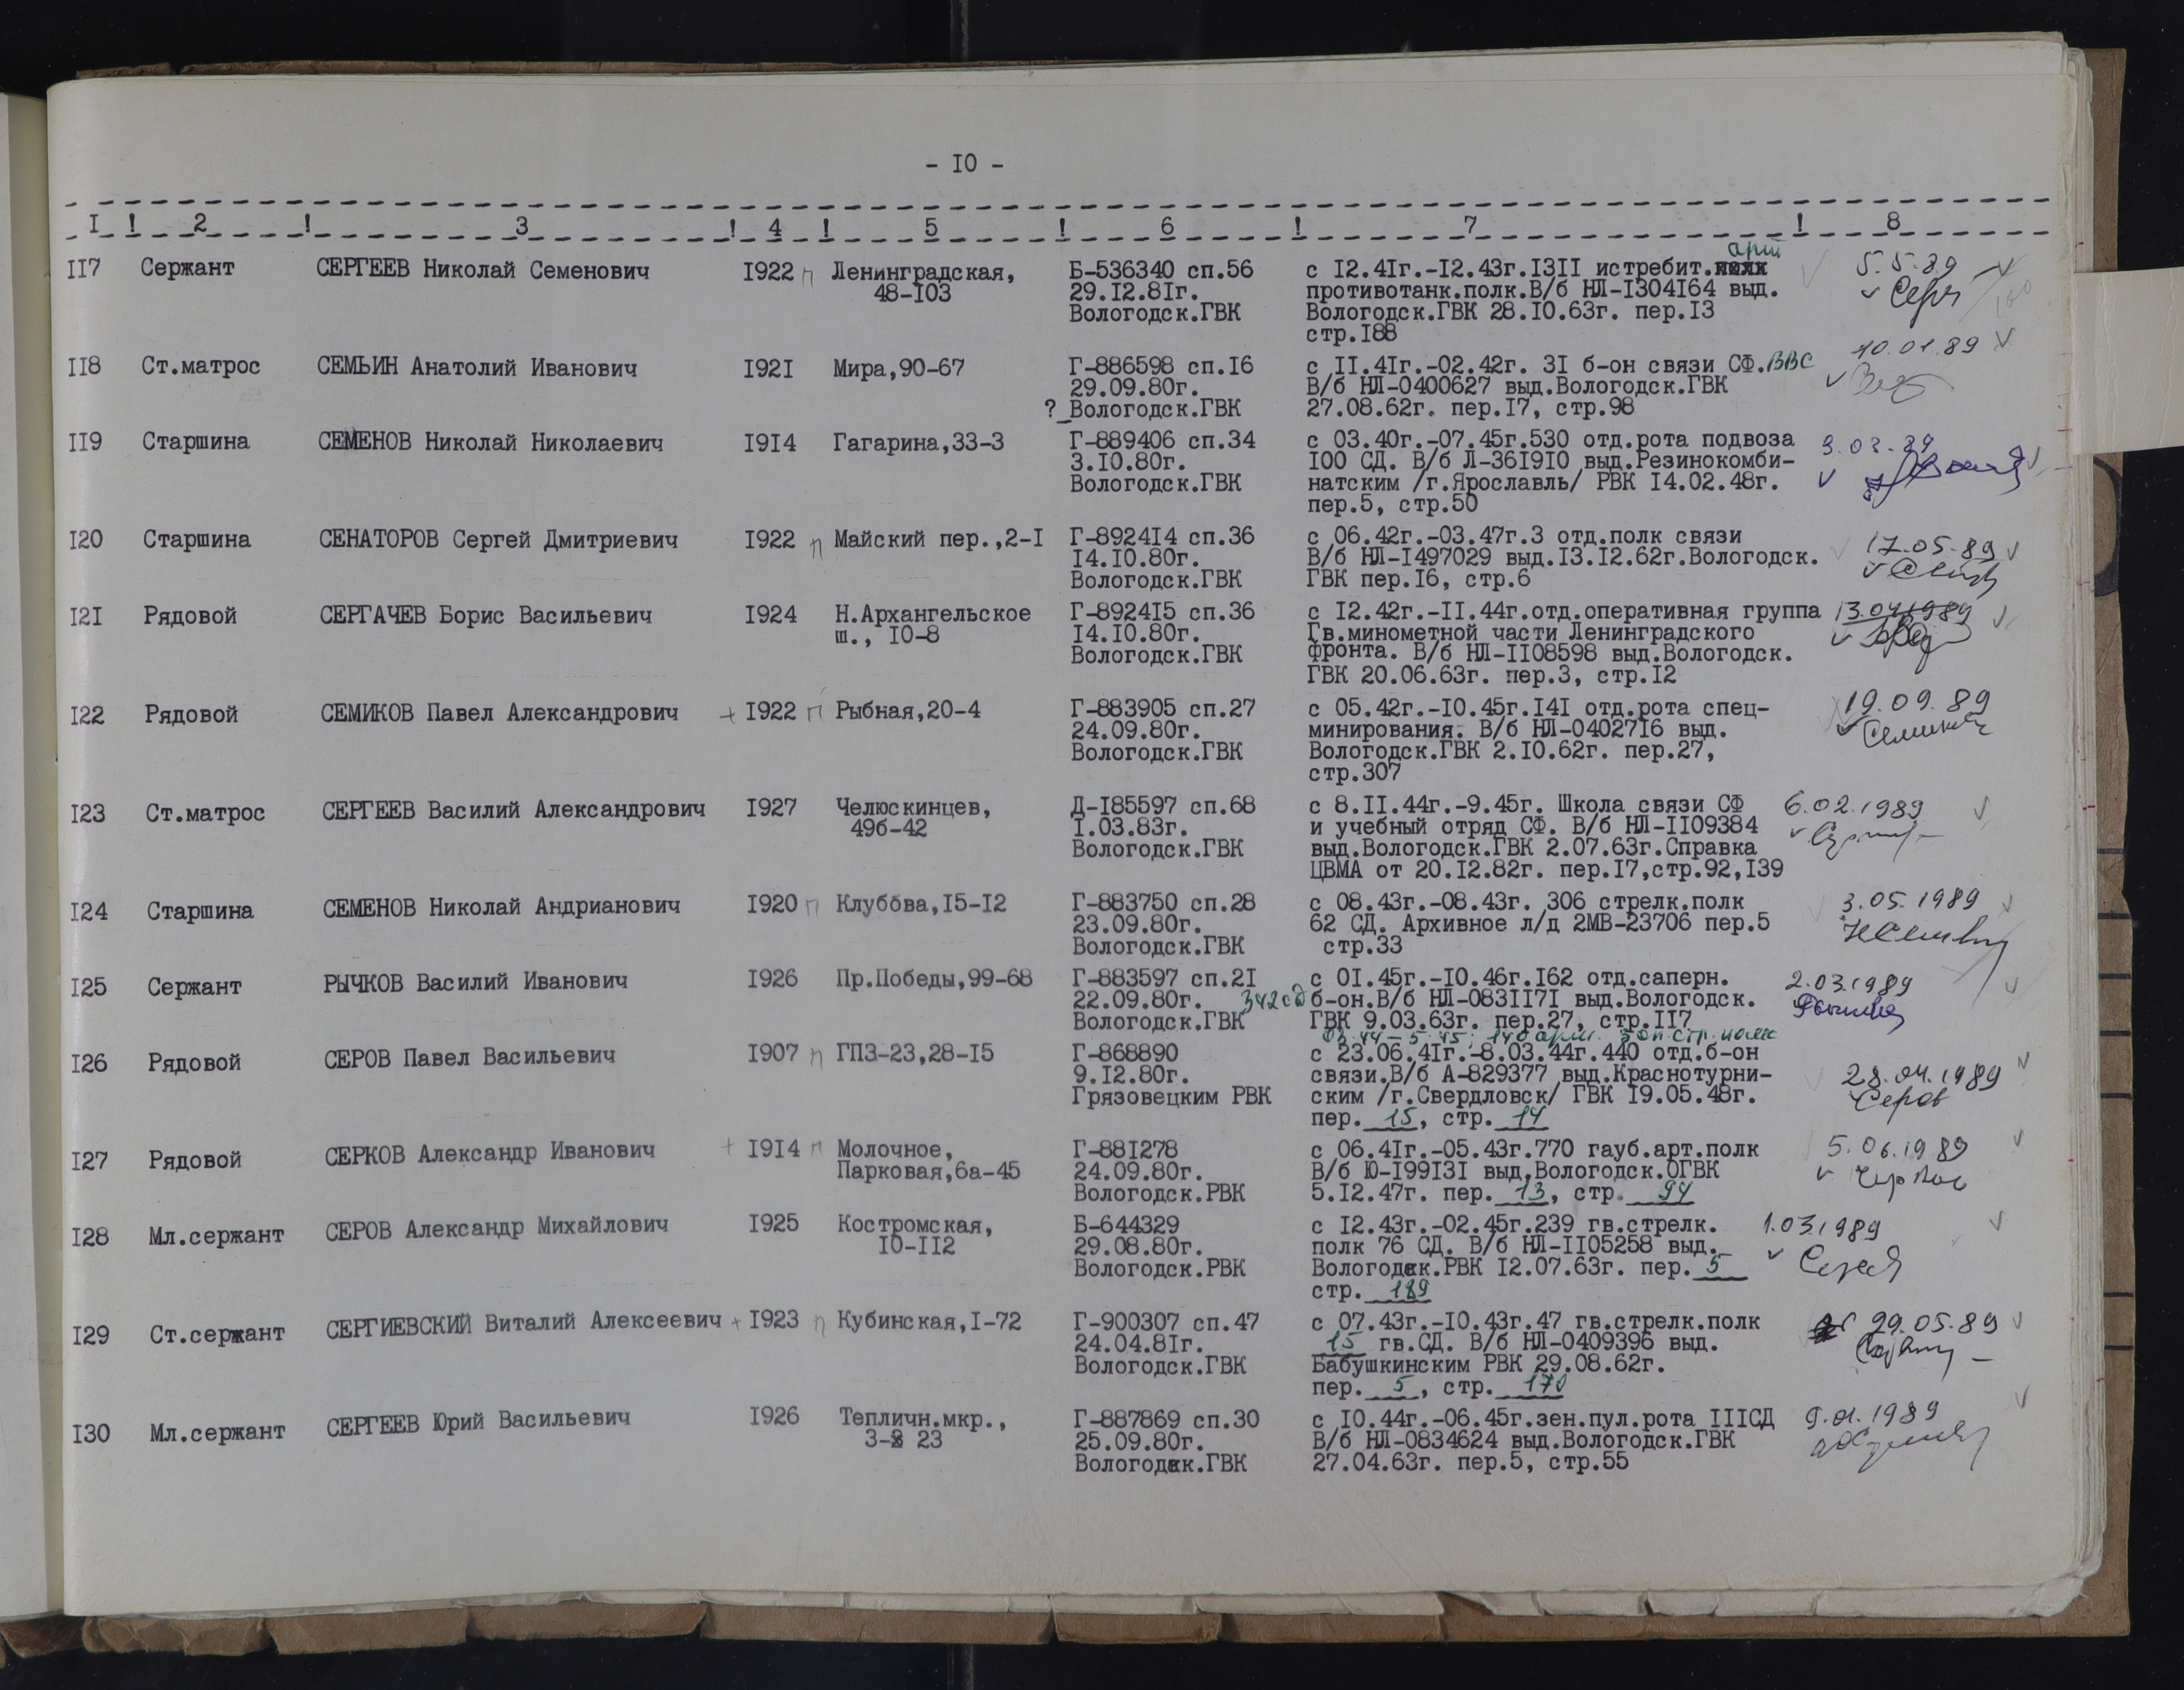 - I0 -
I ! 2 ! 3 ! 4 ! 5 ! 6 ! 7 ! 8
II7 Сержант СЕРГЕЕВ Николай Семенович I922 п Ленинградская, Б-536340 сп.56 с I2.4Iг.-I2.43г.I3II истребит. арт 5.5.89
48-I03 29.I2.8Iг. противотанк.полк.В/б НЛ-I304I64 выд.
Вологодск.ГВК Вологодск.ГВК 28.I0.63г. пер.I3
стр.I88
II8 Ст.матрос СЕМЬИН Анатолий Иванович I92I Мира,90-67 Г-886598 сп.I6 с II.4Iг.-02.42г. 3I б-он связи СФ.ВВС 10.01.89
29.09.80г. В/б НЛ-0400627 выд.Вологодск.ГВК
? Вологодск.ГВК 27.08.62г. пер.I7, стр.98
II9 Старшина СЕМЕНОВ Николай Николаевич I9I4 Гагарина,33-3 Г-889406 сп.34 с 03.40г.-07.45г.530 отд.рота подвоза 9.03.89
3.I0.80г. I00 СД. В/б Л-36I9I0 выд.Резинокомби-
Вологодск.ГВК натским /г.Ярославль/ РВК I4.02.48г.
пер.5, стр.50
I20 Старшина СЕНАТОРОВ Сергей Дмитриевич I922 п Майский пер.,2-I Г-8924I4 сп.36 с 06.42г.-03.47г.3 отд.полк связи 17.05.89
I4.I0.80г. В/б НЛ-I497029 выд.I3.I2.62г.Вологодск.
Вологодск.ГВК ГВК пер.I6, стр.6
I2I Рядовой СЕРГАЧЕВ Борис Васильевич I924 Н.Архангельское Г-8924I5 сп.36 с I2.42г.-II.44г.отд.оперативная группа 13.04.1989
ш., I0-8 I4.I0.80г. Гв.минометной части Ленинградского
Вологодск.ГВК фронта. В/б НЛ-II08598 выд.Вологодск.
ГВК 20.06.63г. пер.3, стр.I2
I22 Рядовой СЕМИКОВ Павел Александрович + I922 п Рыбная,20-4 Г-883905 сп.27 с 05.42г.-I0.45г.I4I отд.рота спец- 19.09.89
24.09.80г. минирования. В/б НЛ-04027I6 выд. Семиков
Вологодск.ГВК Вологодск.ГВК 2.I0.62г. пер.27,
стр.307
I23 Ст.матрос СЕРГЕЕВ Василий Александрович I927 Челюскинцев, Д-I85597 сп.68 с 8.II.44г.-9.45г. Школа связи СФ 6.02.1989
49б-42 I.03.83г. и учебный отряд СФ. В/б НЛ-II09384
Вологодск.ГВК выд.Вологодск.ГВК 2.07.63г.Справка
ЦВМА от 20.I2.82г. пер.I7,стр.92,I39
I24 Старшина СЕМЕНОВ Николай Андрианович I920 п Клубова,I5-I2 Г-883750 сп.28 с 08.43г.-08.43г. 306 стрелк.полк 3.05.1989
23.09.80г. 62 СД. Архивное л/д 2МВ-23706 пер.5
Вологодск.ГВК стр.33
I25 Сержант РЫЧКОВ Василий Иванович I926 Пр.Победы,99-68 Г-883597 сп.2I с 0I.45г.-I0.46г.I62 отд.саперн. 2.03.1989
22.09.80г. 342сд б-он.В/б НЛ-083II7I выд.Вологодск.
Вологодск.ГВК ГВК 9.03.63г. пер.27, стр.II7
03.44-5.45; 140 арм. зап.стр.полк
I26 Рядовой СЕРОВ Павел Васильевич I907 п ГПЗ-23,28-I5 Г-868890 с 23.06.4Iг.-8.03.44г.440 отд.б-он
9.I2.80г. связи.В/б А-829377 выд.Краснотурни- 28.04.1989
Грязовецким РВК ским /г.Свердловск/ ГВК I9.05.48г. Серов
пер. 15, стр. 14
I27 Рядовой СЕРКОВ Александр Иванович + I9I4 п Молочное, Г-88I278 с 06.4Iг.-05.43г.770 гауб.арт.полк 5.06.1989
Парковая,6а-45 24.09.80г. В/б Ю-I99I3I выд.Вологодск.ОГВК
Вологодск.РВК 5.I2.47г. пер. 13, стр. 94
I28 Мл.сержант СЕРОВ Александр Михайлович I925 Костромская, Б-644329 с I2.43г.-02.45г.239 гв.стрелк. 1.03.1989
I0-II2 29.08.80г. полк 76 СД. В/б НЛ-II05258 выд.
Вологодск.РВК Вологодск.РВК I2.07.63г. пер. 5
стр. 189
I29 Ст.сержант СЕРГИЕВСКИЙ Виталий Алексеевич + I923 п Кубинская,I-72 Г-900307 сп.47 с 07.43г.-I0.43г.47 гв.стрелк.полк 29.05.89
24.04.8Iг. 15 гв.СД. В/б НЛ-0409396 выд.
Вологодск.ГВК Бабушкинским РВК 29.08.62г.
пер. 5, стр. 170
I30 Мл.сержант СЕРГЕЕВ Юрий Васильевич I926 Тепличн.мкр., Г-887869 сп.30 с I0.44г.-06.45г.зен.пул.рота IIIСД 9.01.1989
3- 23 25.09.80г. В/б НЛ-0834624 выд.Вологодск.ГВК
Вологодск.ГВК 27.04.63г. пер.5, стр.55